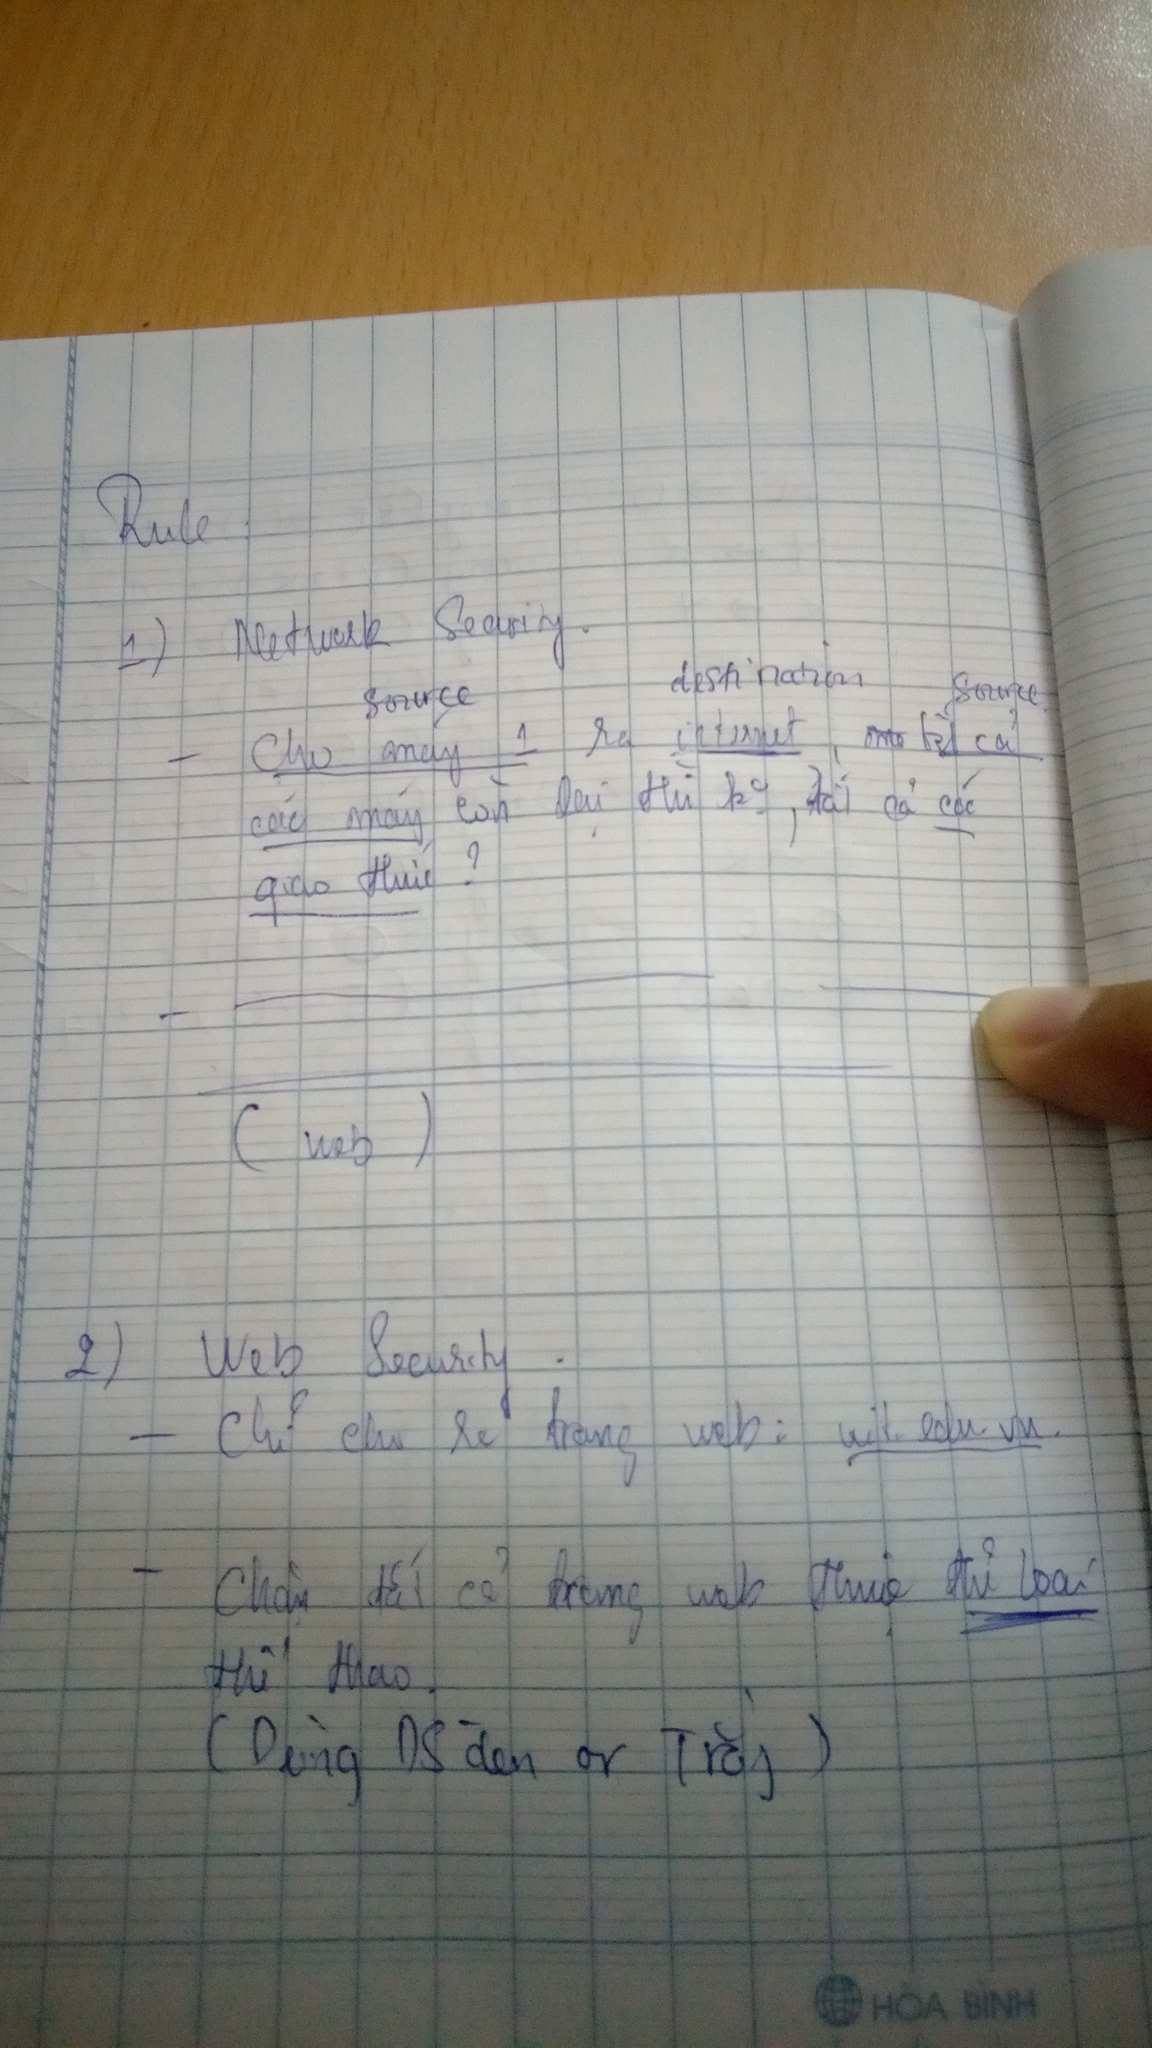 Rule
1) Network Security.
source destination source
- Cho máy 1 ra internet, tất cả
các máy còn lại thì kg, tất cả các
giao thức?
-
(web)
2) Web Security.
- Chỉ cho ra trang web: uit.edu.vn.
- Chặn tất cả trang web thuộc thể loại
thể thao.
(Dùng DS đen or Trắng)
HÒA BÌNH